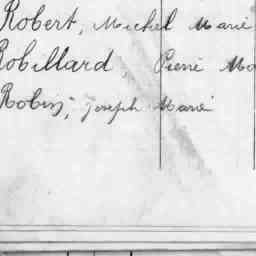 Robert, Michel Marie
Robillard, Pierre Ma
Robin, Joseph Marie